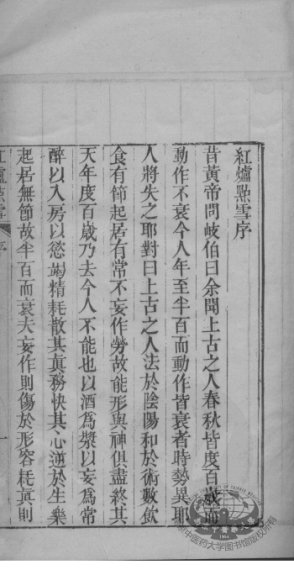 紅爐點雪序
昔黃帝問岐伯曰余聞上古之人春秋皆度百歲而
動作不衰今人年至半百而動作皆衰者時勢異耶
人將失之耶對曰上古之人法於陰陽和於術數飲
食有節起居有常不妄作勞故能形與神俱盡終其
天年度百歲乃去今人不能也以酒為漿以妄為常
醉以入房以慾竭精耗散其真務快其心逆於生樂
起居無節故半百而衰夫妄作則傷於形容耗真則
紅爐點雪
序